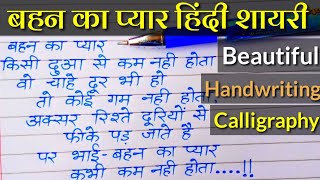 बहन का प्यार हिंदी शायरी
बहन का प्यार
किसी दुआ से कम नही होता
वो चाहे दूर भी हो
तो कोई गम नही होता,
अक्सर रिश्ते दूरियों से
फीके पड़ जाते है
पर भाई-बहन का प्यार
कभी कम नही होता....!!
Beautiful
Handwriting
Calligraphy